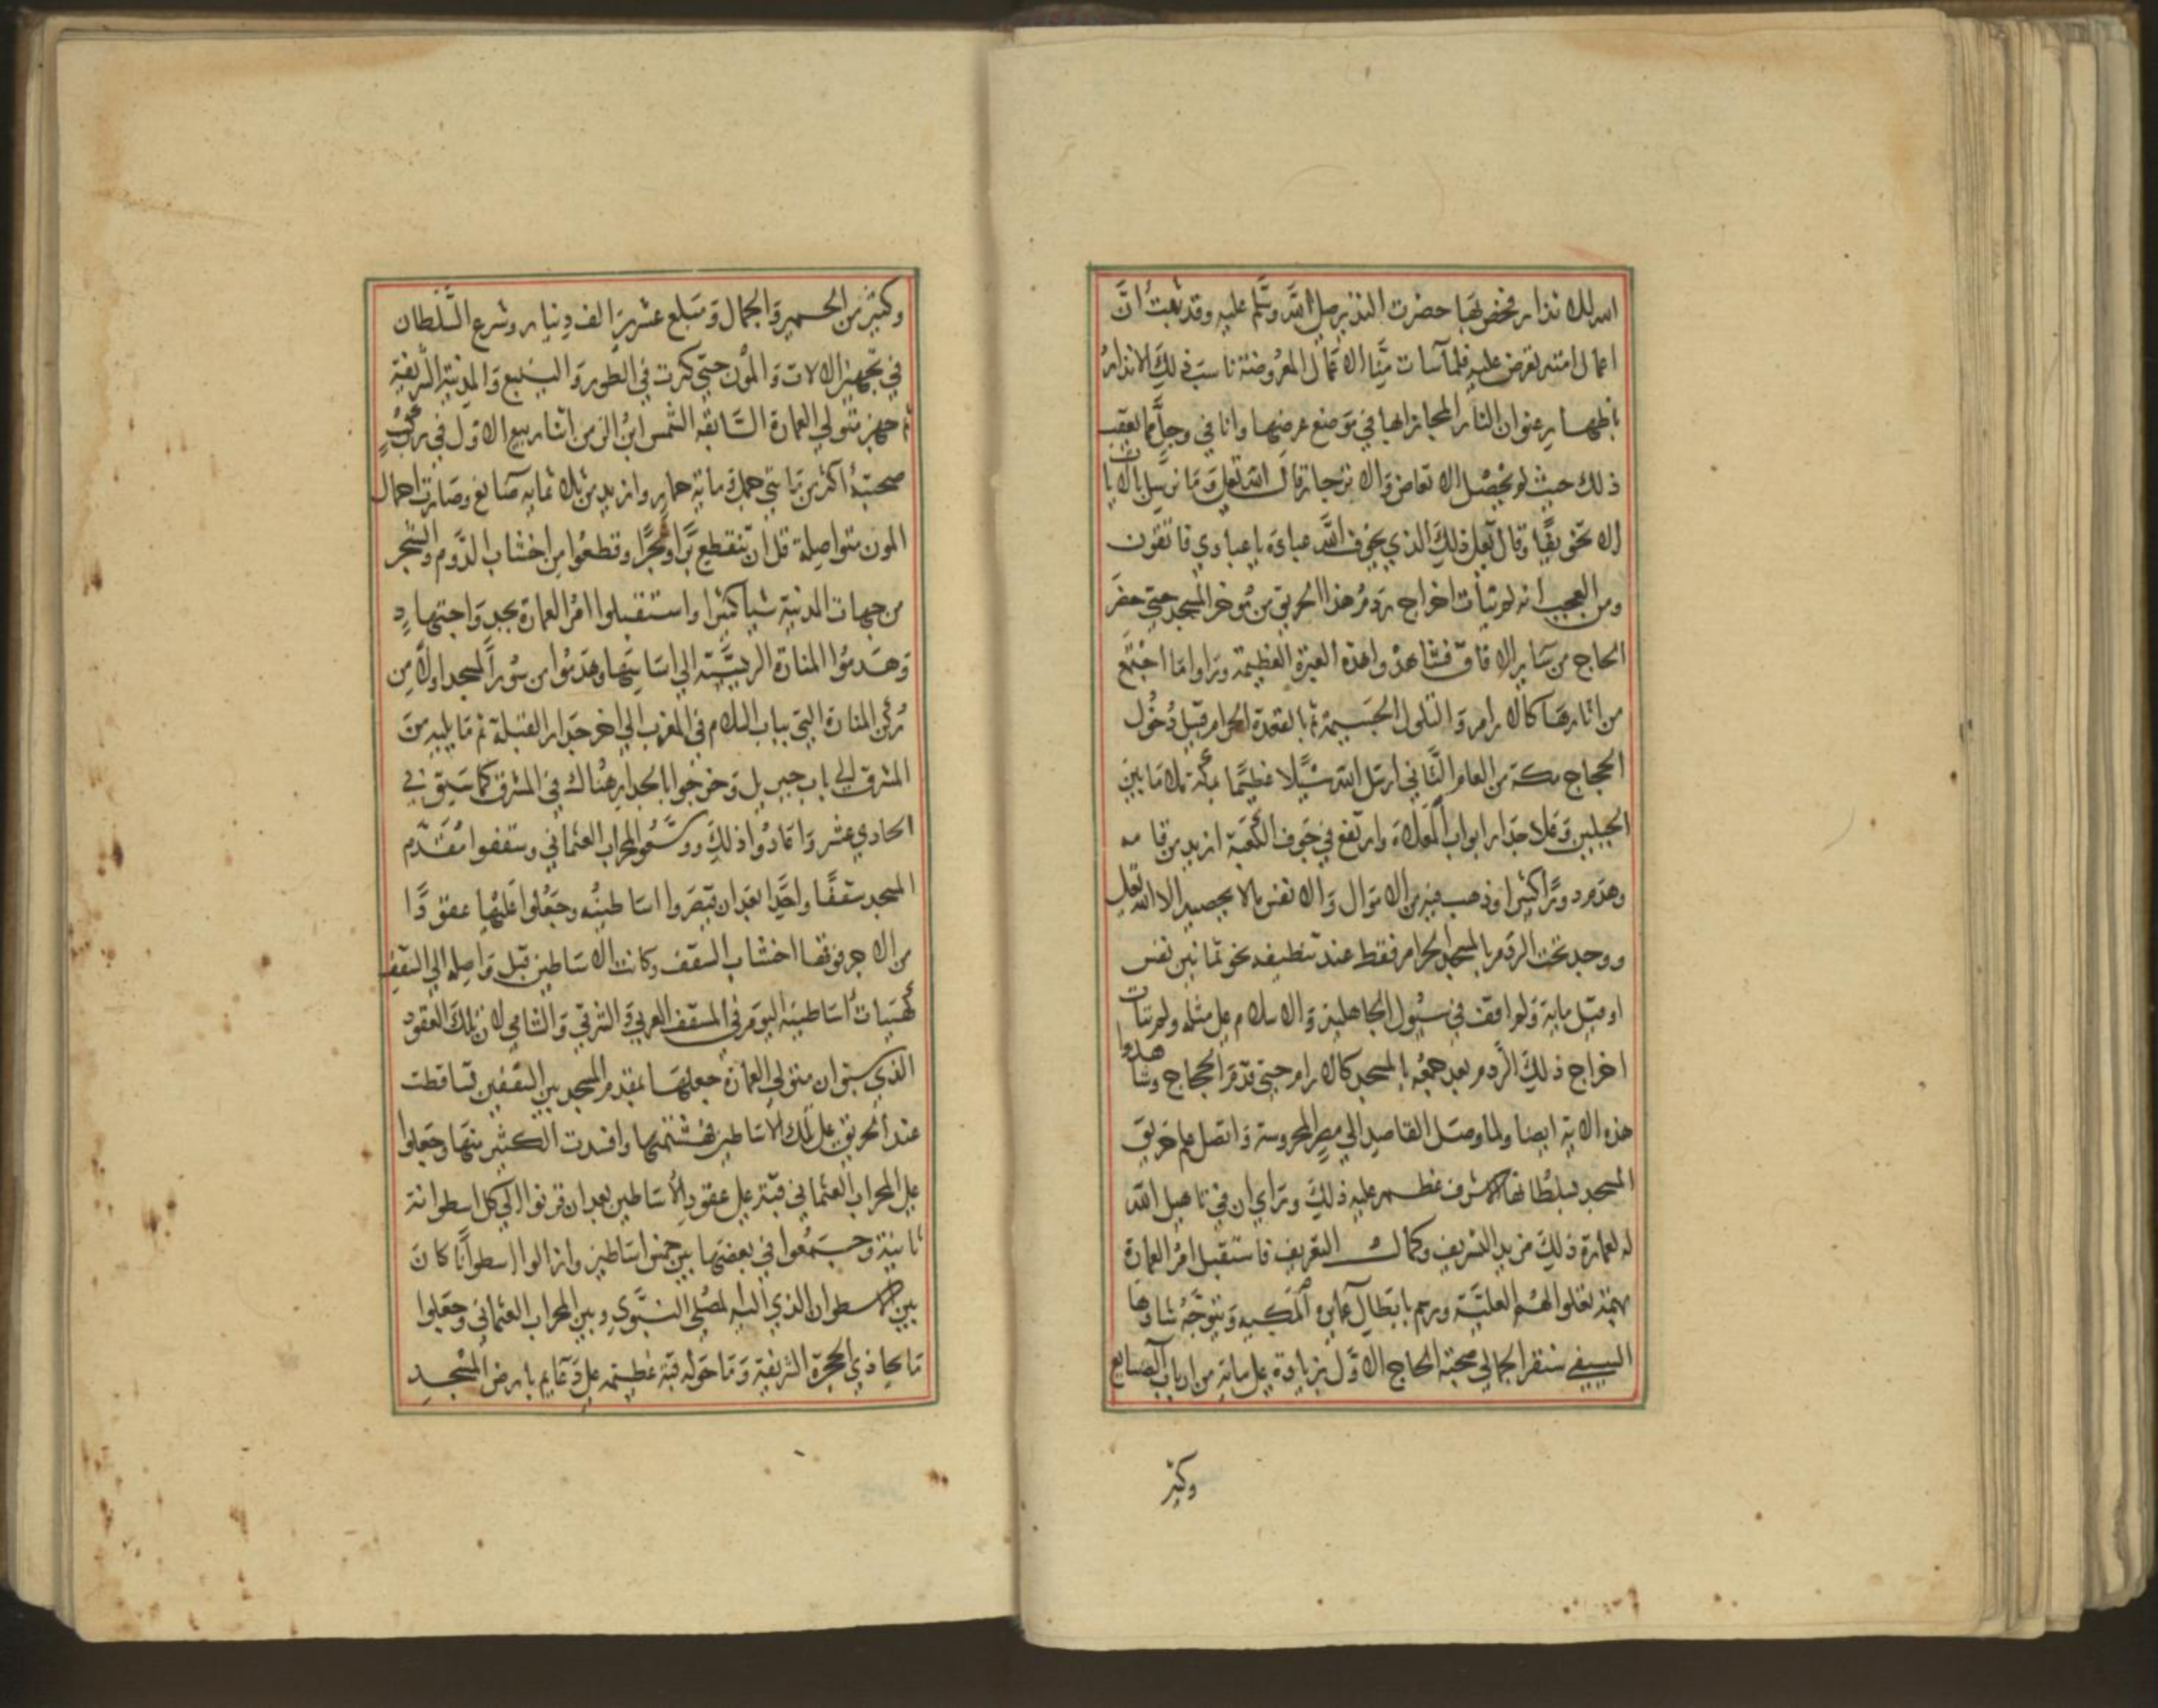 اسلك نذار فخص بها حضرت النذير صلى الله وسلم عليه وقد ثبت ان
اعمال امته تعرض عليه فلما سات منا الاعمال المعروضة ناسب ذلك الانذار
باظهار عنوان النار المجازا بها في موضع عرضها وانا في وجل مما يعقب
ذلك حيث لم يحصل الاتعاض والانزجار قال الله تعلى وما نرسل بالايات
الا تخويفا وقال تعلى ذلك الذي يخوف الله عباده يا عبادي فاتقون
ومن العجب انه لم يتأت اخراج ردم هذا الحريق من موخر المسجد حتى حضر
الحاج من ساير الافاق فشاهدوا هذه العبرة العظيمة وراوا ما اجتمع
من اثارها كالارام والتلول الجسيمة ثم بالقعدة الحرام قبل دخول
الحجاج مكة من العام الثاني ارسل الله سيلا عظيما بمكة ملا ما بين
الجبلين وعلا جدار ابواب المعلاة وارتفع في جوف الكعبة ازيد من قامه
وهدم دورا كثيرا وذهب فيه من الاموال والانفس ما لا يحصيه الا الله تعلى
ووجد تحت الردم بالمسجد الحرام فقط عند تنظيفه نحو ثمانين نفس
او قيل ماية ولم اقف في سيول الجاهلية والاسلام على مثله ولم يتأت
اخراج ذلك الردم بعد جمعه بالمسجد كالارام حتى قدم الحجاج وشاهدوا
هذه الاية ايضا ولما وصل القاصد الى مصر المحروسة واتصل علم حريق
المسجد بسلطانها الاشرف عظم عليه ذلك وراي ان في تاهيل الله
له لعمارة ذلك مزيد التشريف وكمال التعريف فاستقبل امر العمارة
بهمة تعلوا الهمم العلية ورسم بابطال عمايره المكيه وتتوجه شادها
السيفي سنقر الجمالي صحبة الحاج الاول بزيادة على ماية من ارباب الصنايع
وكثير
وكثير من الحمير والجمال ومبلغ عشرين الف دينار وشرع السلطان
في تجهيز الالات والمون حتى كثرت في الطور والينبع والمدينة الشريفة
ثم جهز متولي العمارة السابقه الشمس ابن الزمن اثنا ربيع الاول في ركب
صحبته أكثر من مايتي جمل وماية حمار وازيد من ثلاثمايه صانع وصارت احمال
المون متواصلة قل ان تنقطع برا وبحرا وقطعوا من اخشاب الدوم والشجر
من جهات المدنية شيا كثيرا واستقبلوا امر العمارة بجد واجتهاد
وهدموا المنارة الرييسية الى اساسها وهدموا من سور المسجد اولا من
ركن المنارة التي بباب السلام في المغرب الى اخر جدار القبلة ثم ما يليه من
المشرق الى باب جبريل وخرجوا بالجدار هناك في المشرق كما سبق في
الحادي عشر واعادوا ذلك ووسعوا المحراب العثماني وسقفوا مقدم
المسجد سقفا واحدا بعد ان قصروا اساطينه وجعلوا عليها عقودا
من الاجر فوقها اخشاب السقف وكانت الاساطين قبل واصلة الى السقف
كهيات اساطينه اليوم في المسقف الغربي والشرقي والشامي لان تلك العقود
الذي سبق ان متولي العمارة جعلها بمقدم المسجد بين السقفين تساقطت
عند الحريق على تلك الاساطين فهشمتها وافسدت الكثير منها وجعلوا
على المحراب العثماني قبة على عقود الاساطين بعد ان قرنوا الى كل اسطوانة
ثانية وجمعوا في بعضها بين خمس اساطين وازالوا اسطوانا كان
بين الاسطوان الذي اليه المصلى النبوي وبين المحراب العثماني وجعلوا
ما يحاذي الحجرة الشريفة وما حوله قبة عظيمة على دعايم بارض المسجد